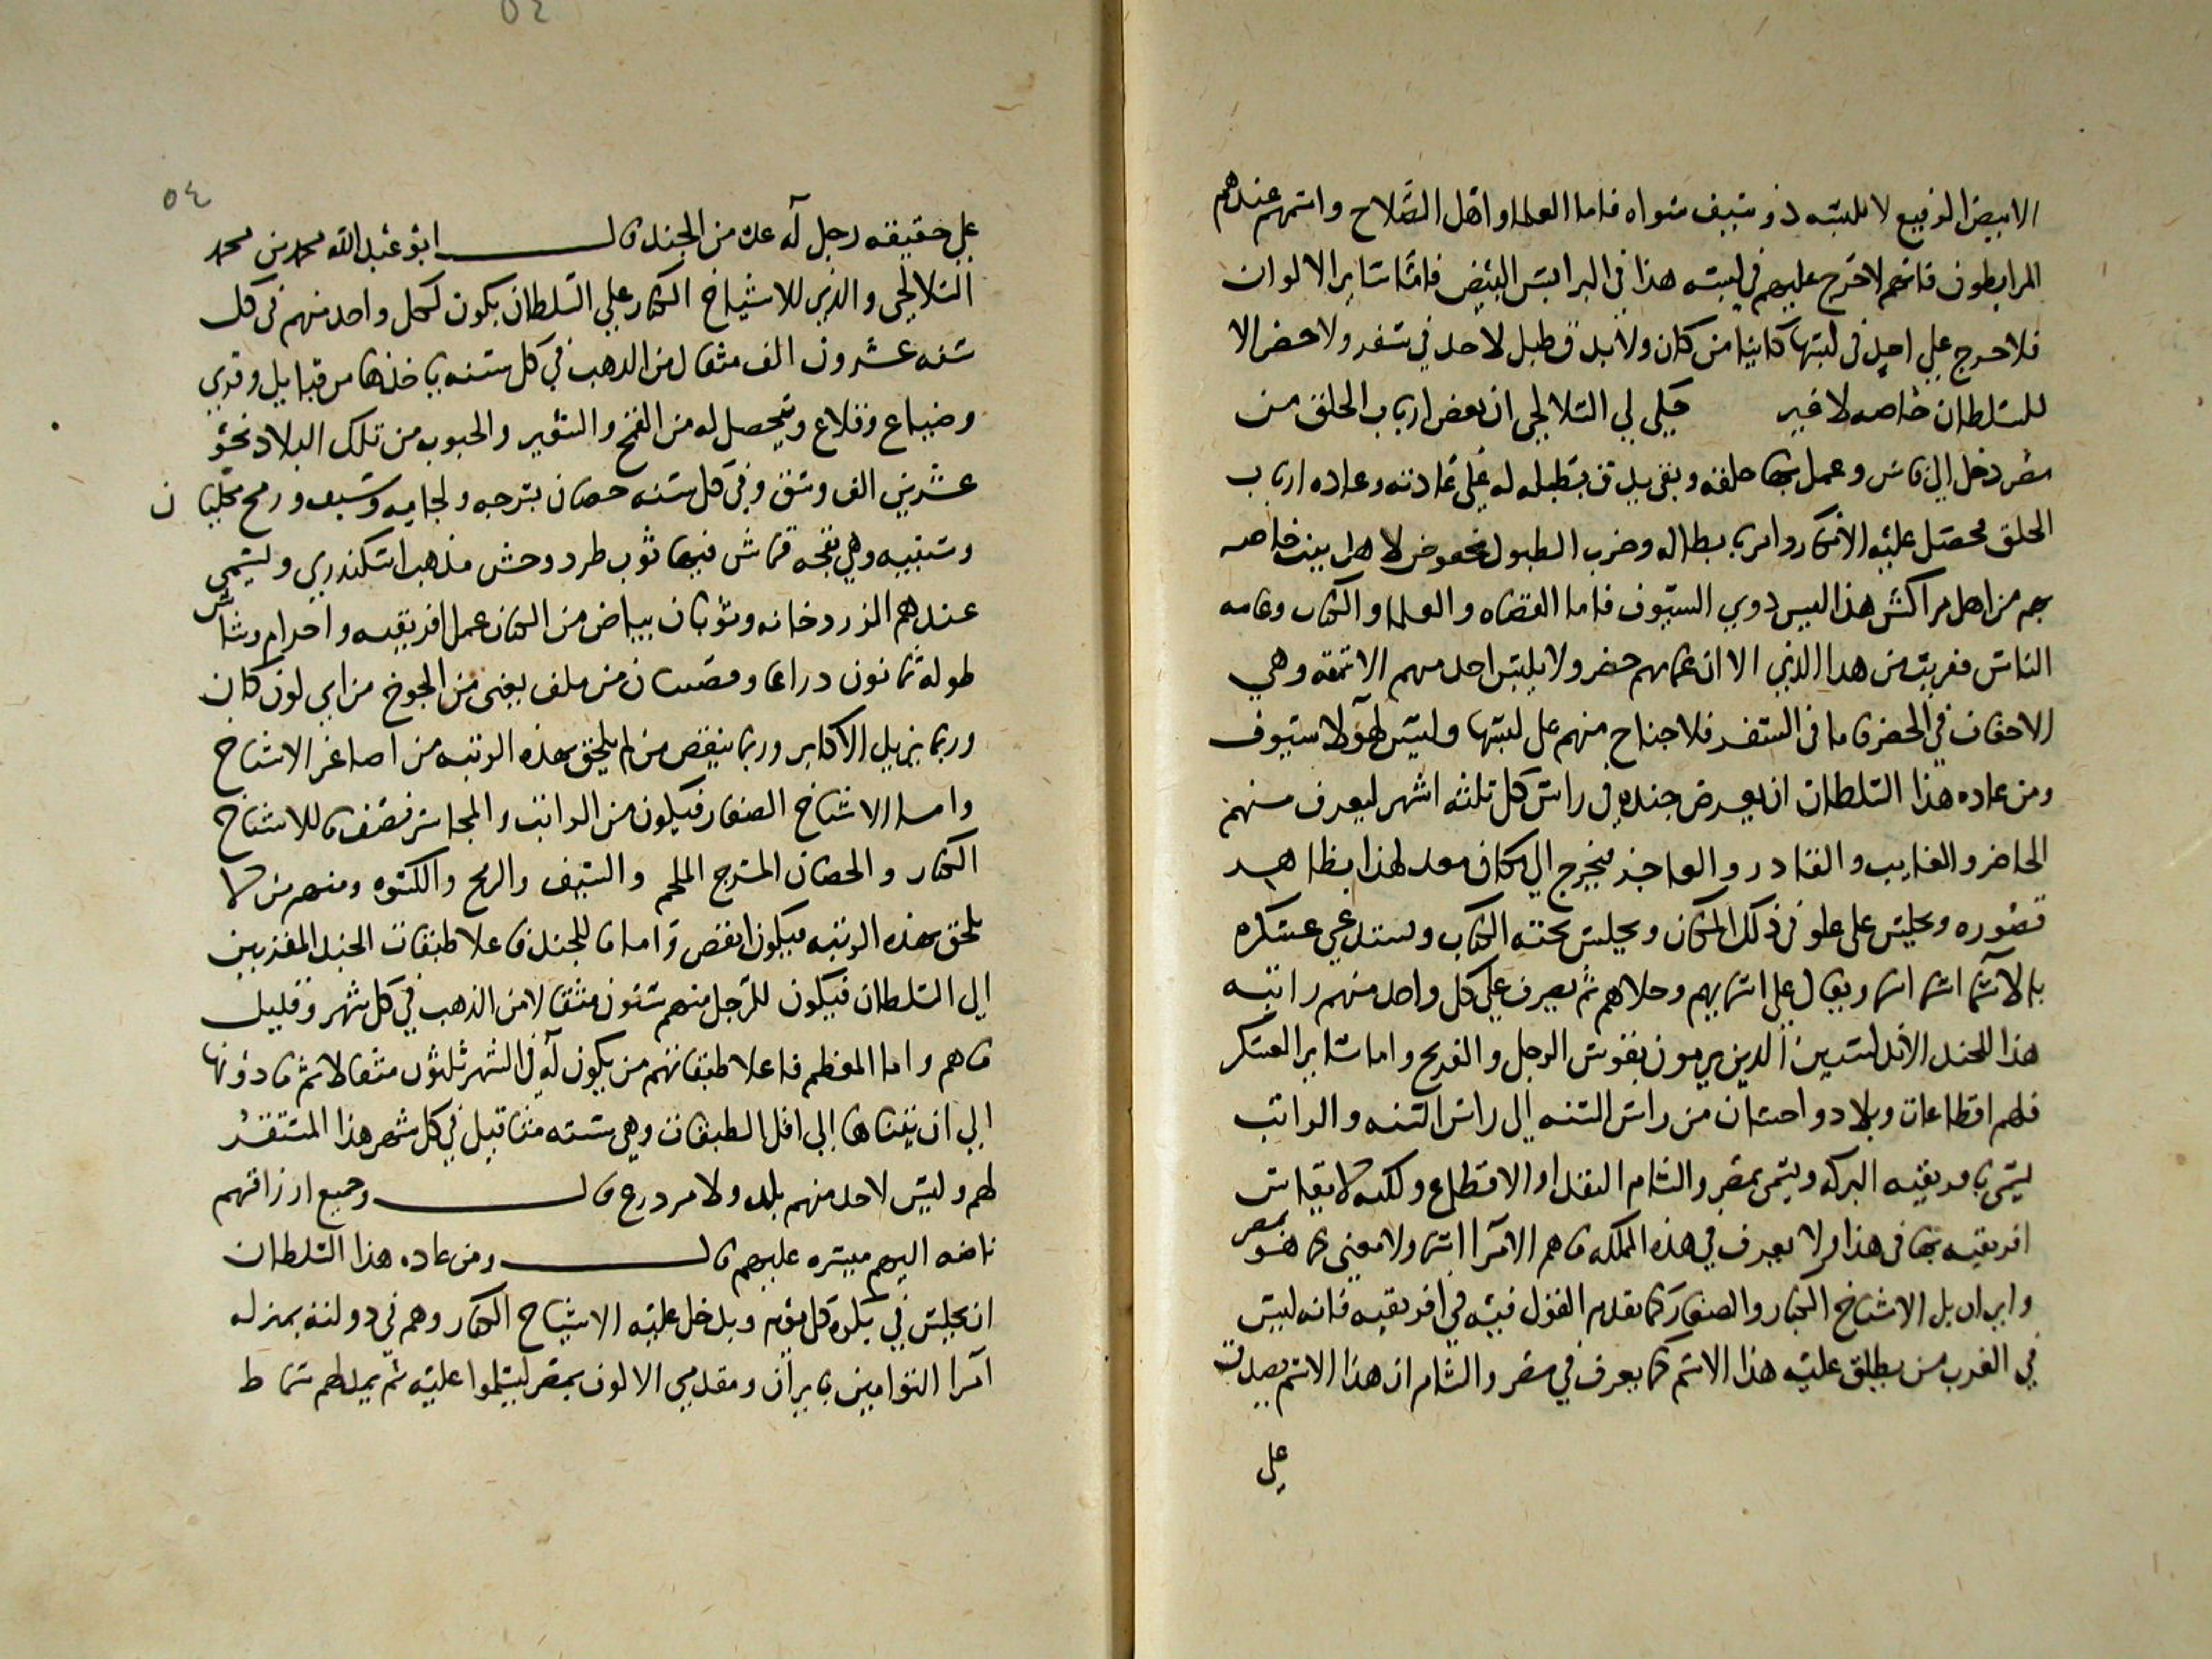 الابيض الرفيع لا يلبسه ذو سيف سواه فاما العلما واهل الصلاح واسمهم عندهم
المرابطون فانهم لا حرج عليهم في لبسه هذا في البرانس البيض فاما ساير الالوان
فلا حرج علي احد في لبسها كاينا من كان ولا يدق طبل لاحد في سفر ولا حضر الا
للسلطان خاصه لا غير حكي لي السلالحي ان بعض ارباب الحلق من
مصر دخل الي فاس وعمل بها حلقه وبقي يدق بتطبله له علي عادته وعاده ارباب
الحلق فحصل عليه الانكار وامر بابطاله وضرب الطبول مخصوص لاهل بيت خاصه
من اهل مراكش هذا لبس ذوي السيوف فاما القضاه والعلما والكتاب وعامه
الناس فقريب من هذا الذي الا ان عمايمهم خضر ولا يلبس احد منهم الاتمقه وهي
الاخفاف في الحضر فاما في السفر فلا جناح منهم علي لبسها وليس لهولا سيوف
ومن عاده هذا السلطان ان يعرض جنده في راس كل ثلثه اشهر ليعرف منهم
الحاضر والغايب والقادر والعاجز فيخرج الي مكان معد لهذا بظاهر
قصوره ويجلس علي علو في ذلك المكان ويجلس تحته الكتاب ويستدعي عسكره
بالاسما اسما اسما ويقال علي اسمايهم وحلاهم ثم يصرف علي كل واحد منهم راتبه
هذا للجند الاندلسيين الذين يرمون بقوس الرجل والفريج واما ساير العسكر
فلهم اقطاعات وبلاد واحسان من راس السنه الي راس السنه والراتب
يسمي بافريقيه البركه ويسمي بمصر والشام النقد او الاقطاع ولكنه لا يقاس
افريقيه بها في هذا ولا يعرف في هذه المملكه ما هم الامرا اسما ولا معني كما هو بمصر
وايران بل الاشياخ الكبار والصغار كما تقدم القول فيه في افريقيه فانه ليس
في الغرب من يطلق عليه هذا الاسم كما يعرف في مصر والشام ان هذا الاسم يصدق
علي
٥٤
علي حقيقه رجل له عده من الجند قال ابو عبد الله محمد بن محمد
السلالحي والذي للاشياخ الكبار علي السلطان يكون لكل واحد منهم في كل
سنه عشرون الف مثقال من الذهب في كل سنه ياخذها من قبايل وقري
وضياع وقلاع ويتحصل له من القمح والشعير والحبوب من تلك البلاد نحو
عشرين الف وسق وفي كل سنه حصان بسرجه ولجامه وسيف ورمح محليان
وسبنيه وهي بقجه قماش فيها ثوب طرد وحش مذهب اسكندري ويسمي
عندهم الزردخانه وثوبان بياض من الكتان عمل افريقيه واحرام وشاش
طوله ثمانون ذراعا وقصبتان من ملف يعني من الجوخ من اي لون كان
وربما يزيد الاكابر وربما ينقص من لم يلحق بهذه الرتبه من اصاغر الاشياخ
واما الاشياخ الصغار فيكون من الراتب والمجاشر نصف ما للاشياخ
الكبار والحصان المسرج الملجم والسيف والرمح والكسوه ومنهم من لا
يلحق بهذه الرتبه فيكون انقص واما ما للجند فاعلا طبقات الجند المقربين
الي السلطان فيكون للرجل منهم ستون مثقالا من الذهب في كل شهر وقليل
ما هم واما المعظم فاعلا طبقاتهم من يكون له في الشهر ثلثون مثقالا ثم ما دونها
الي ان يتناها الي اقل الطبقات وهي سته مثاقيل في كل شهر هذا المستقر
لهم وليس لاحد منهم بلد ولا مزدرع قال وجميع ارزاقهم
ناضه اليهم ميسره عليهم قال ومن عاده هذا السلطان
ان يجلس في بكره كل يوم ويدخل عليه الاشياخ الكبار وهم في دولته بمنزله
امرا النوامين بايران ومقدمي الالوف بمصر ليسلموا عليه ثم يمد لهم سماط